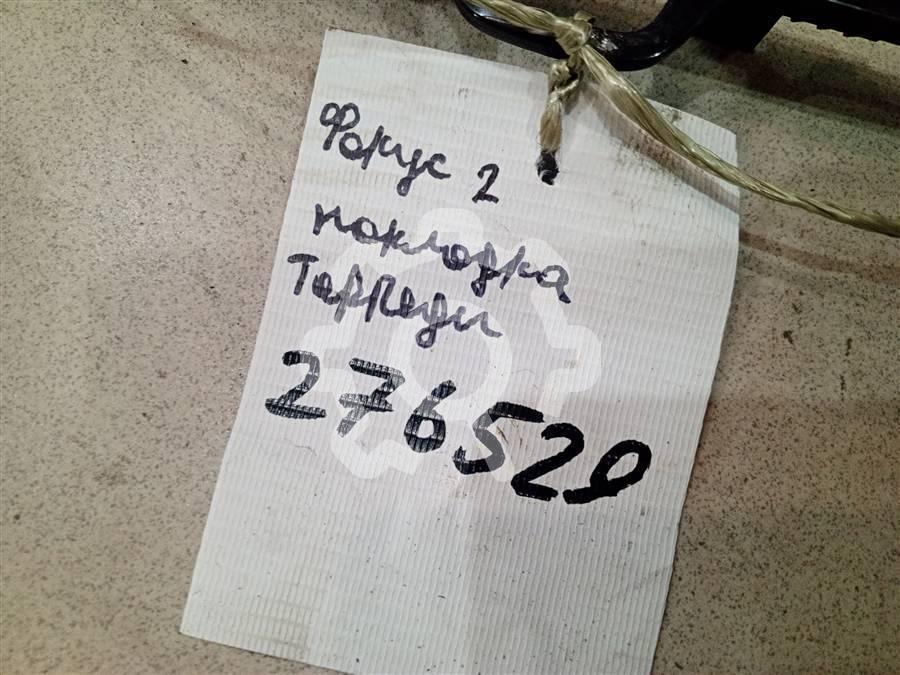 Фокус 2
накладка
Торпеды
276529